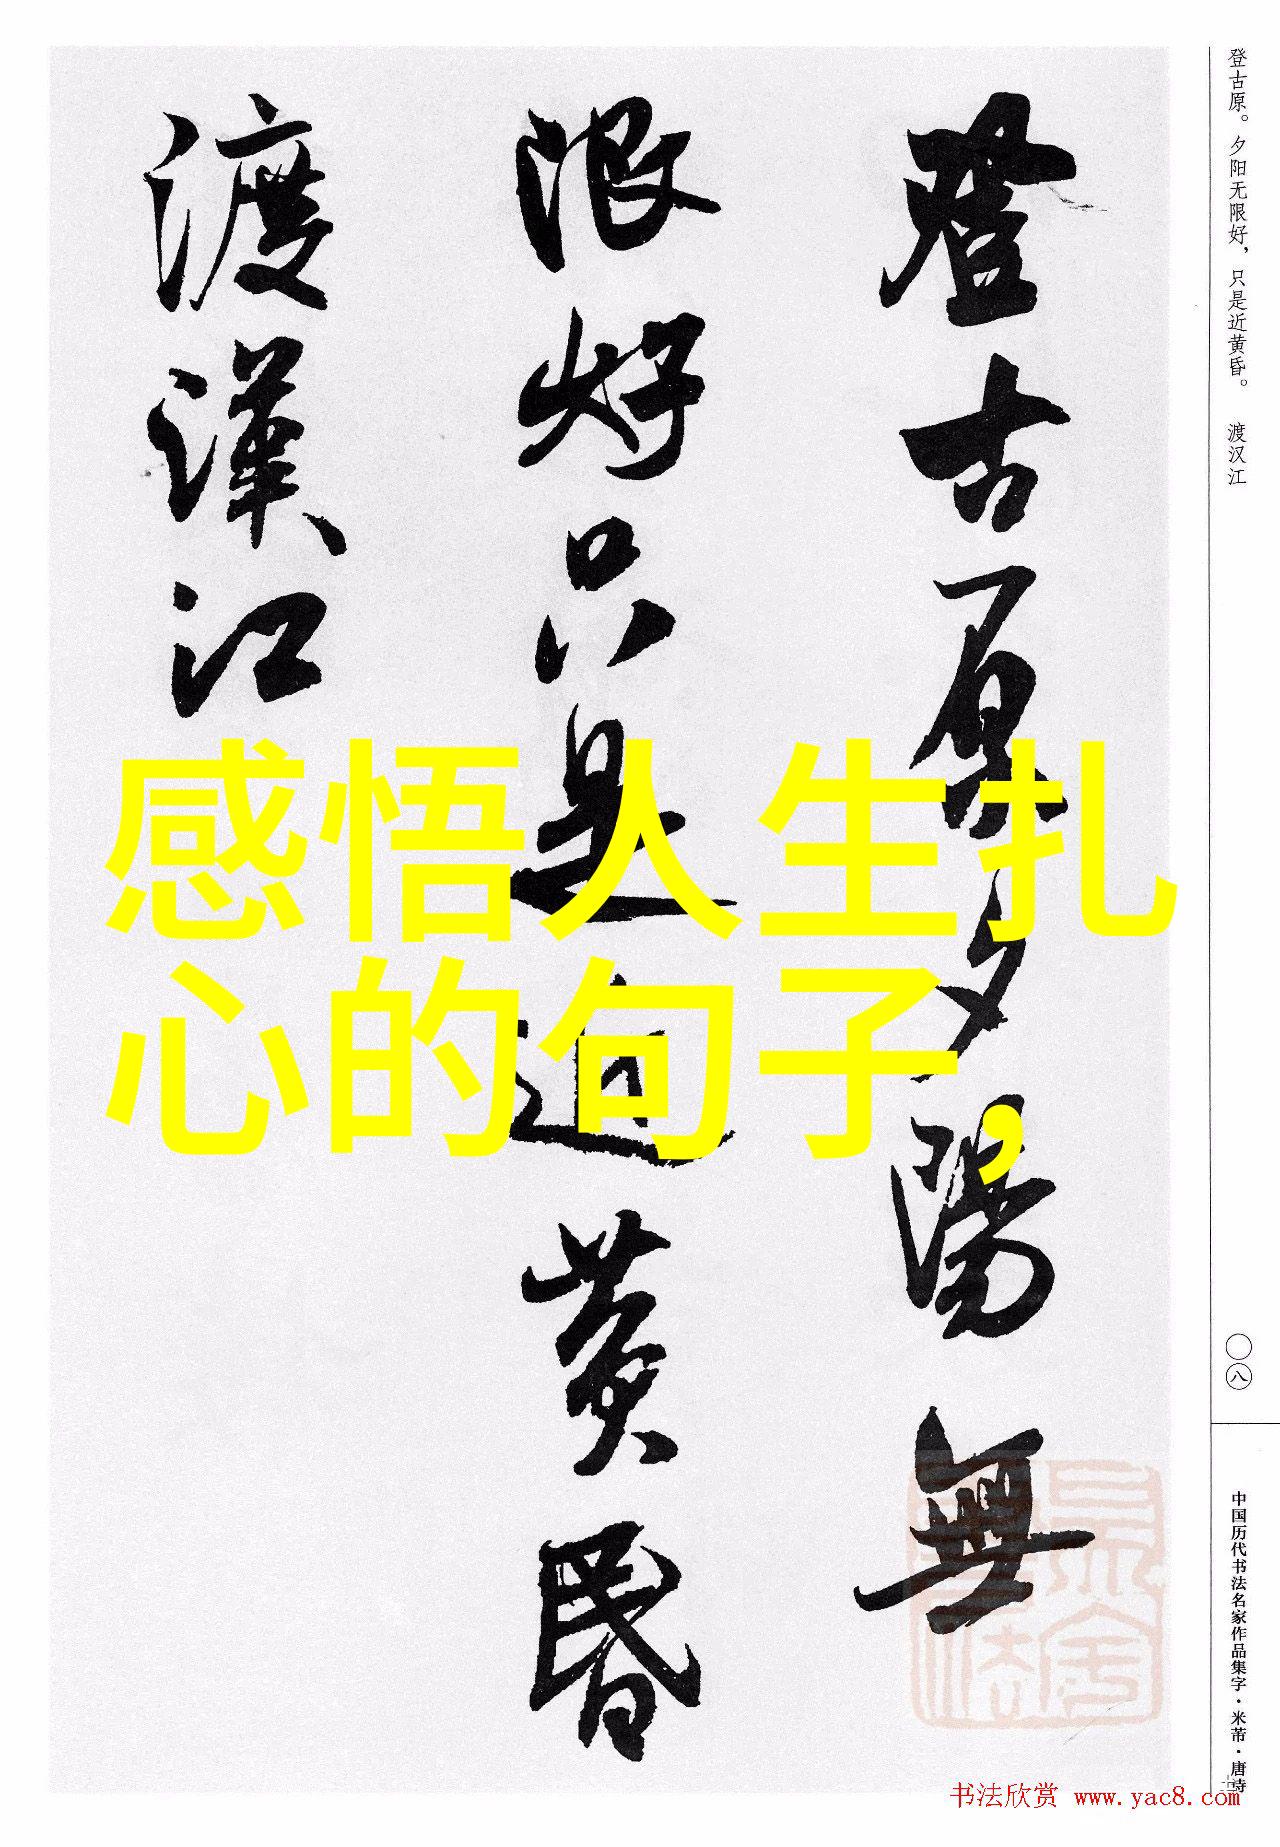 登古原夕陽無
限好只是近黄昏
渡漢江
感悟人生扎
心的句子，
登古原。夕阳无限好，只是近黄昏。 渡汉江
〇八
中国历代书法名家作品集字·米芾·唐诗
书法欣赏 www.yac8.com